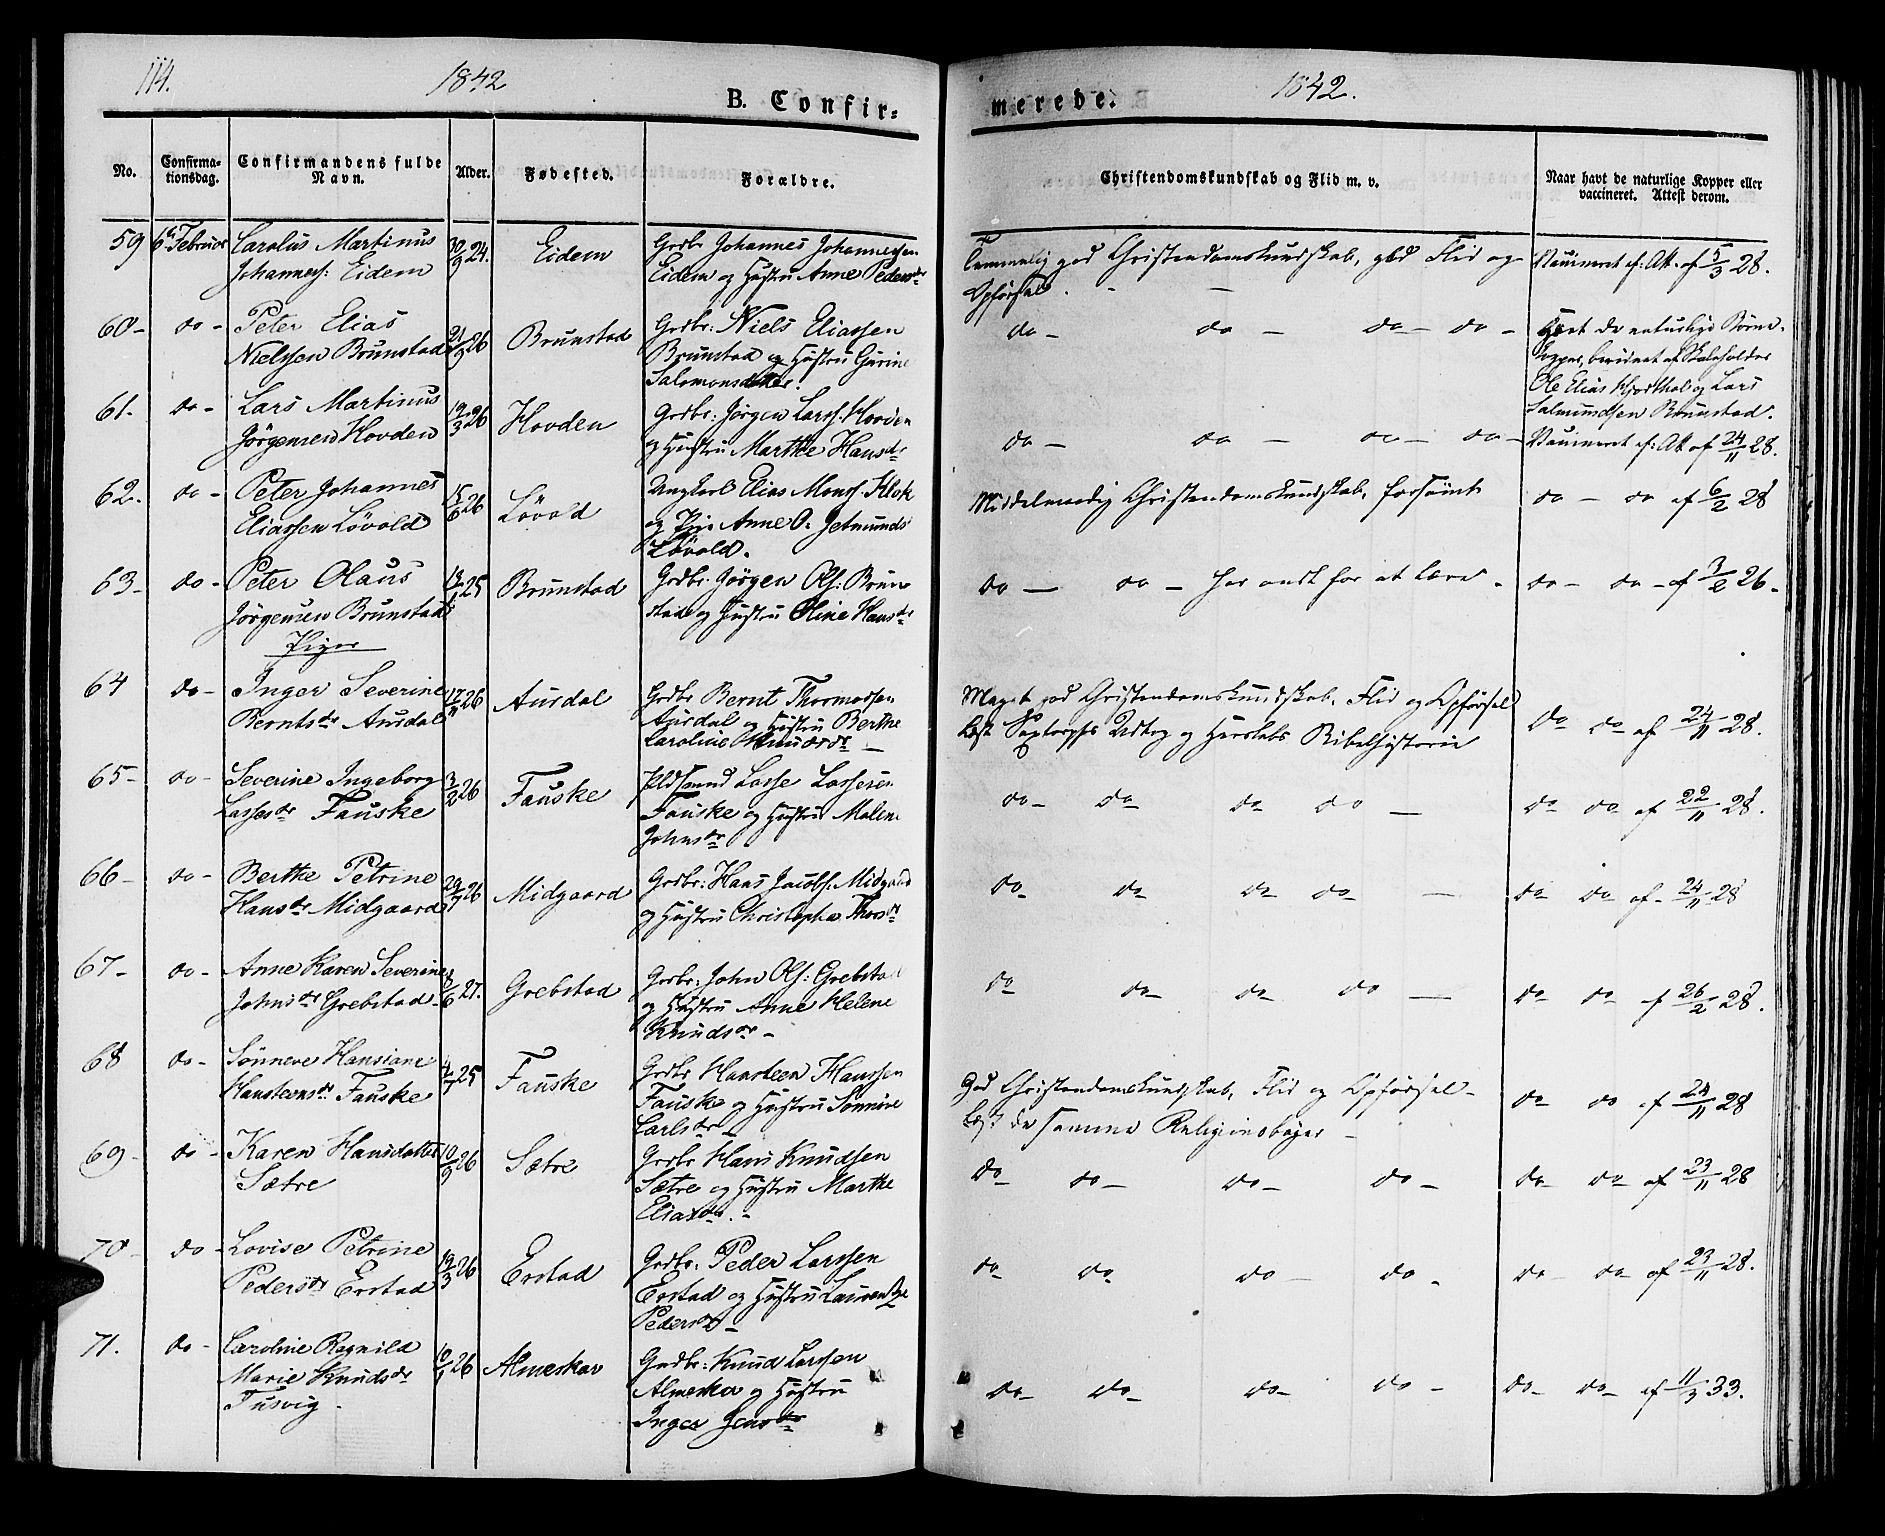 114.
1842
B. Confir-
merede.
1842.
No.
Confirma-
tionsdag.
Confirmandens fulde
Navn.
Alder.
Fødested.
Forældre.
Christendomskundskab og Flid m. v.
Naar havt de naturlige Kopper eller
vaccineret. Attest derom.
59 6te Februar Carolus Martinus 30/9 24. Eidem Grdbr Johannes Johannessen
Johanness: Eidem
Eidem og Hustru Anne Pedersdr
Temmelig god Christendomskundskab, god Flid og
Opførsel. - -
Vaccineret ef: Att. af 5/3 28.
60 - do - Peter Elias 21/9 26 Brunstad Grdbr: Niels Eliassen
Nielssen Brunstad
Brunstad og Hustru Gurine
Salomonsdatter.
do - do - do - do -
Havt de naturlige Børne-
kopper, bevidnet af Skoleholder
Ole Elias Hjorthol og Lars
Salmundsen Brunstad.
61. do - Lars Martinus 12/3 26 Hovden Grdbr: Jørgen Larss. Hovden
Jørgensen Hovden
og Hustru Marthe Hansdr
do - do - do - do -
Vaccineret ef: Att af 24/11 28.
62. do - Peter Johannes 15/6 26 Løvold Ungkarl Elias Monss. Klok
Eliassen Løvold
og Pige Anne O. Jetmundsdr
Løvold.
Middelmaadig Christendomskundskab, forsømt
do - do af 6/2 28
63 - do - Peter Olaus 25 Brunstad Grdbr: Jørgen Ols: Brun
Jørgensen Brunstad
stad og Hustru Oline Hansdr
do - do - har ondt for at lære -
do - do - af 7/2 26 -
Piger
64 do - Inger Severine 17/11 26 Aursdal Grdbr Bernt Thomassen
Berntsdr Aursdal
Aursdal og Hustru Berthe
Caroline Knudsdr -
Meget god Christendomskundskab, Flid og Opførsel
Læst Saxtorphs Udtog og Herslebs Bibelhistorie
do do af 24/11 28.
65 - do - Severine Ingeborg 3/2 26 Fauske Huusmand Lasse Lassesen
Lassesdr Fauske
Fauske og Hustru Malene
Johnsdr
do - do do do -
do do af 22/11 28.
66 - do - Berthe Petrine 29/7 26 Midgaard Grdbr: Hans Jacobs. Midgaard
Hansdr Midgaard
og Hustru Christopha Thorsdr
do do do do -
do do af - 24/11 28
67 - do - Anne Karen Severine 27. Grebstad Grdbr: John Ols: Grebstad
Johnsdr Grebstad
og Hustru Anne Helene
Knudsdr -
do do do do -
do do af 26/2 28.
68 do - Sønneve Hansiane 4/7 25 Fauske Grdbr Hansteen Hanssen
Hansteensdr Fauske
Fauske og Hustru Sønnøve
Carlsdr -
God Christendomskundskab, Flid og Opførsel -
Læst de samme Religionsbøger -
do do af 24/11 28
69 - do - Karen Hansdatter 10/9 26 Sætre Grdbr Hans Knudsen
Sætre
Sætre og Hustru Marthe
Eliasdr. -
do do - do - do -
do - do - af 23/11 28
70 - do - Lovise Petrine 19/3 26 Erstad Grdbr: Peder Larssen
Pedersdr Erstad
Erstad og Hustru
Pedersdr -
do do do - do -
do - do af 23/11 28.
71. do - Caroline Ragnild 26 Almeskar Grdbr: Knud Larssen
Marie Knudsdr
Almeskar og Hustru
Tusvig -
Inger Jensdr
do - do - do - do -
do - do - af 11/3 33.